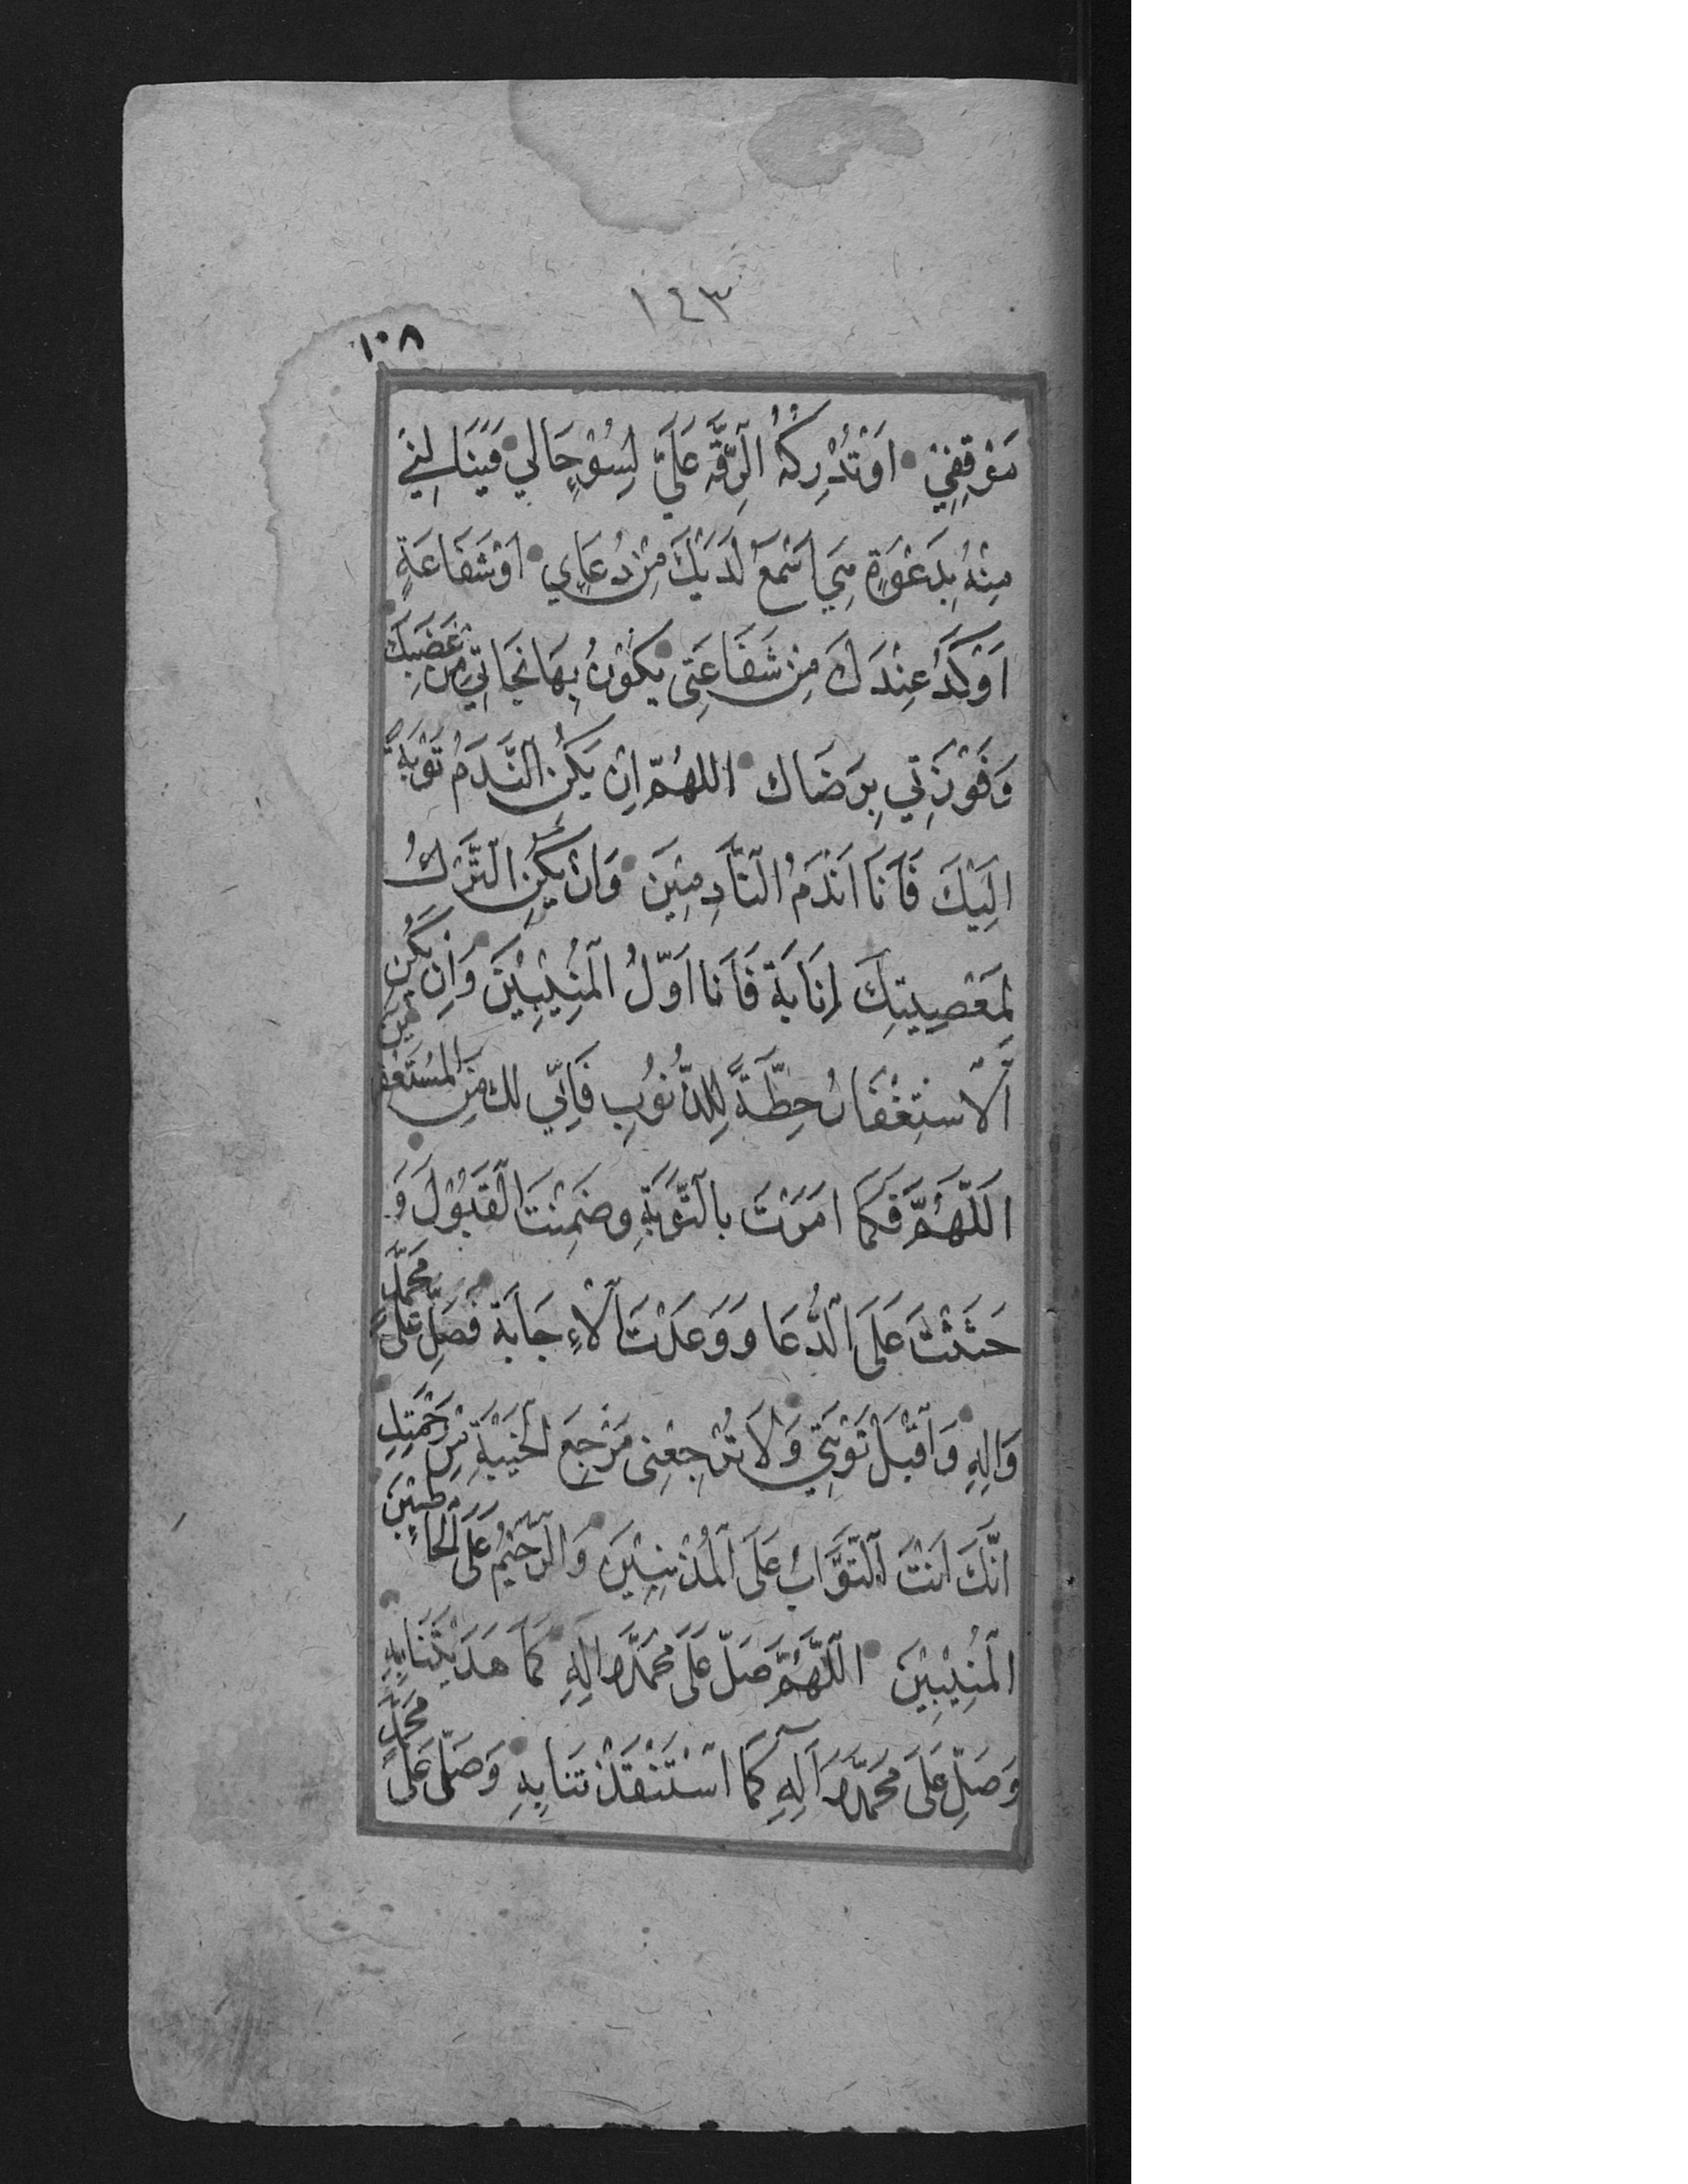 ١٤٣
١٠٨
مَوْقِفِيْ اَوْ تُدْرِكُهُ الرِّقَّةُ عَلَيَّ لِسُوْءِ حَالِي فَيَنَالَنِيْ
مِنْهُ بِدَعْوَةٍ هِيَ اَسْمَعُ لَدَيْكَ مِنْ دُعَايِ اَوْ شَفَاعَةٍ
اَوْكَدُ عِنْدَكَ مِنْ شَفَاعَتِى يَكُوْنُ بِهَا نَجَاتِي مِنْ غَضَبِكَ
وَفَوْزَتِي بِرِضَاكَ اللهُمَّ اِنْ يَكُنِ النَّدَمُ تَوْبَةً
اِلَيْكَ فَاَنَا اَنْدَمُ النَّادِمِيْنَ وَاِنْ يَكُنِ التَّرْكُ
لِمَعْصِيَتِكَ اِنَابَةً فَاَنَا اَوَّلُ الْمُنِيْبِيْنَ وَاِنْ يَكُنِ
الْاِسْتِغْفَارُ حِطَّةً لِلذُّنُوْبِ فَاِنِّي لَكَ مِنَ الْمُسْتَغْفِرِيْنَ
اَللّٰهُمَّ فَكَمَا اَمَرْتَ بِالتَّوْبَةِ وضَمِنْتَ الْقَبُوْلَ وَ
حَثَثْتَ عَلَى الدُّعَا وَوَعَدْتَ الْاِجَابَةَ فَصَلِّ عَلَى مُحَمَّدٍ
وَاٰلِهِ وَاقْبَلْ تَوْبَتِي وَلَا تَرْجِعْنِى مَرْجِعَ الْخَيْبَةِ مِنْ رَحْمَتِكَ
اِنَّكَ اَنْتَ التَّوَّابُ عَلَى الْمُذْنِبِيْنَ وَالرَّحِيْمُ عَلَى الْخَاطِئِيْنَ
الْمُنِيْبِيْنَ اللّٰهُمَّ صَلِّ عَلَى مُحَمَّدٍ وَاٰلِهِ كَمَا هَدَيْتَنَا بِهِ
وَصَلِّ عَلَى مُحَمَّدٍ وَآلِهِ كَمَا اسْتَنْقَذْتَنَا بِهِ وَصَلِّ عَلَى مُحَمَّدٍ